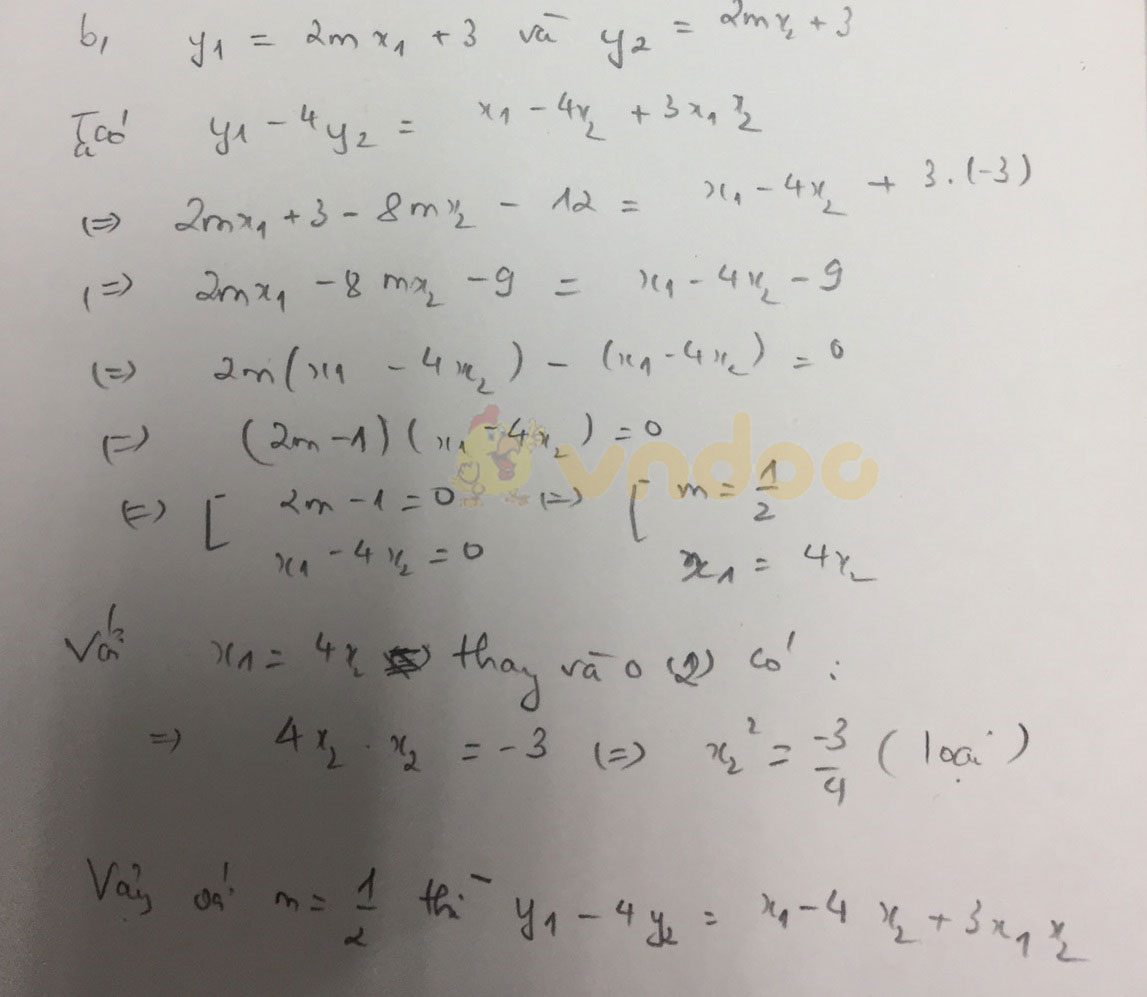 b, y₁ = 2mx₁ + 3 và y₂ = 2mx₂ + 3
Ta có y₁ - 4y₂ = x₁ - 4x₂ + 3x₁x₂
(=) 2mx₁ + 3 - 8mx₂ - 12 = x₁ - 4x₂ + 3.(-3)
(=) 2mx₁ - 8mx₂ - 9 = x₁ - 4x₂ - 9
(=) 2m(x₁ - 4x₂) - (x₁ - 4x₂) = 0
(=) (2m - 1)(x₁ - 4x₂) = 0
vndoc
(=) [ 2m - 1 = 0 (=) [ m = 1/2
x₁ - 4x₂ = 0 x₁ = 4x₂
Với x₁ = 4x₂ thay vào (2) có :
=) 4x₂ . x₂ = -3 (=) x₂² = -3/4 (loại)
Vậy với m = 1/2 thì y₁ - 4y₂ = x₁ - 4x₂ + 3x₁x₂